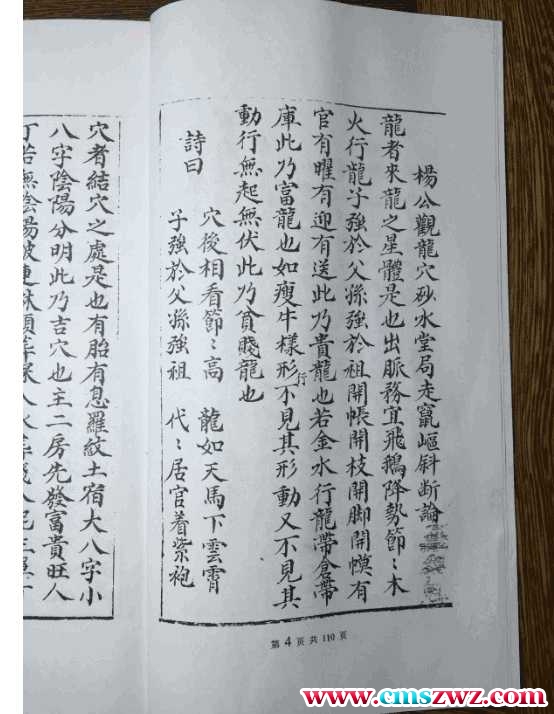 楊公觀龍穴砂水堂局走竄嶇斜斷論
龍者來龍之星體是也出脈務宜飛鵝降勢節〻木
火行龍子強於父孫強於祖開帳開枝開脚開幙有
官有曜有迎有送此乃貴龍也若金水行龍帶倉帶
庫此乃富龍也如瘦牛樣形行不見其形動又不見其
動行無起無伏此乃貧賤龍也
詩曰
穴後相看節〻高 龍如天馬下雲霄
子強於父孫強祖 代〻居官着紫袍
第 4 页 共 110 页
穴者結穴之處是也有胎有息羅紋土宿大八字小
八字陰陽分明此乃吉穴也主二房先發富貴旺人
丁若無陰陽
www.cmszwz.com